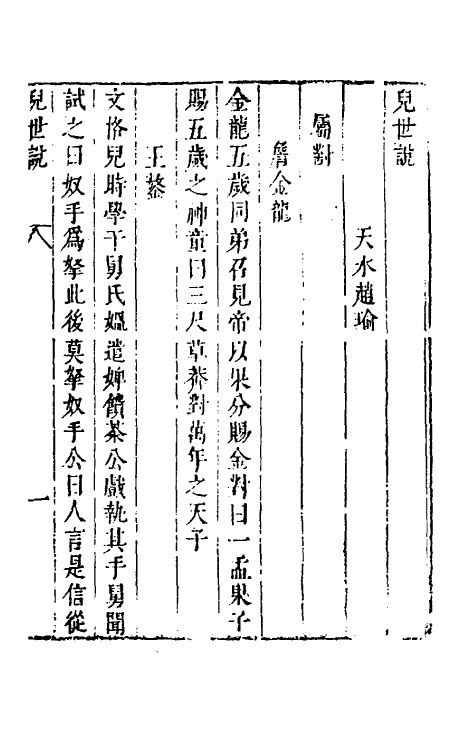 兒世說
天水趙瑜
屬對
胥金龍
金龍五歲同弟召見帝以果分賜金對曰一盂果子
賜五歲之神童曰三尺草莽對萬年之天子
王鏊
文恪兒時學于舅氏媼遣婢饋茶公戲執其手舅聞
試之曰奴手爲拏此後莫拏奴手公曰人言是信從
兒世說 一